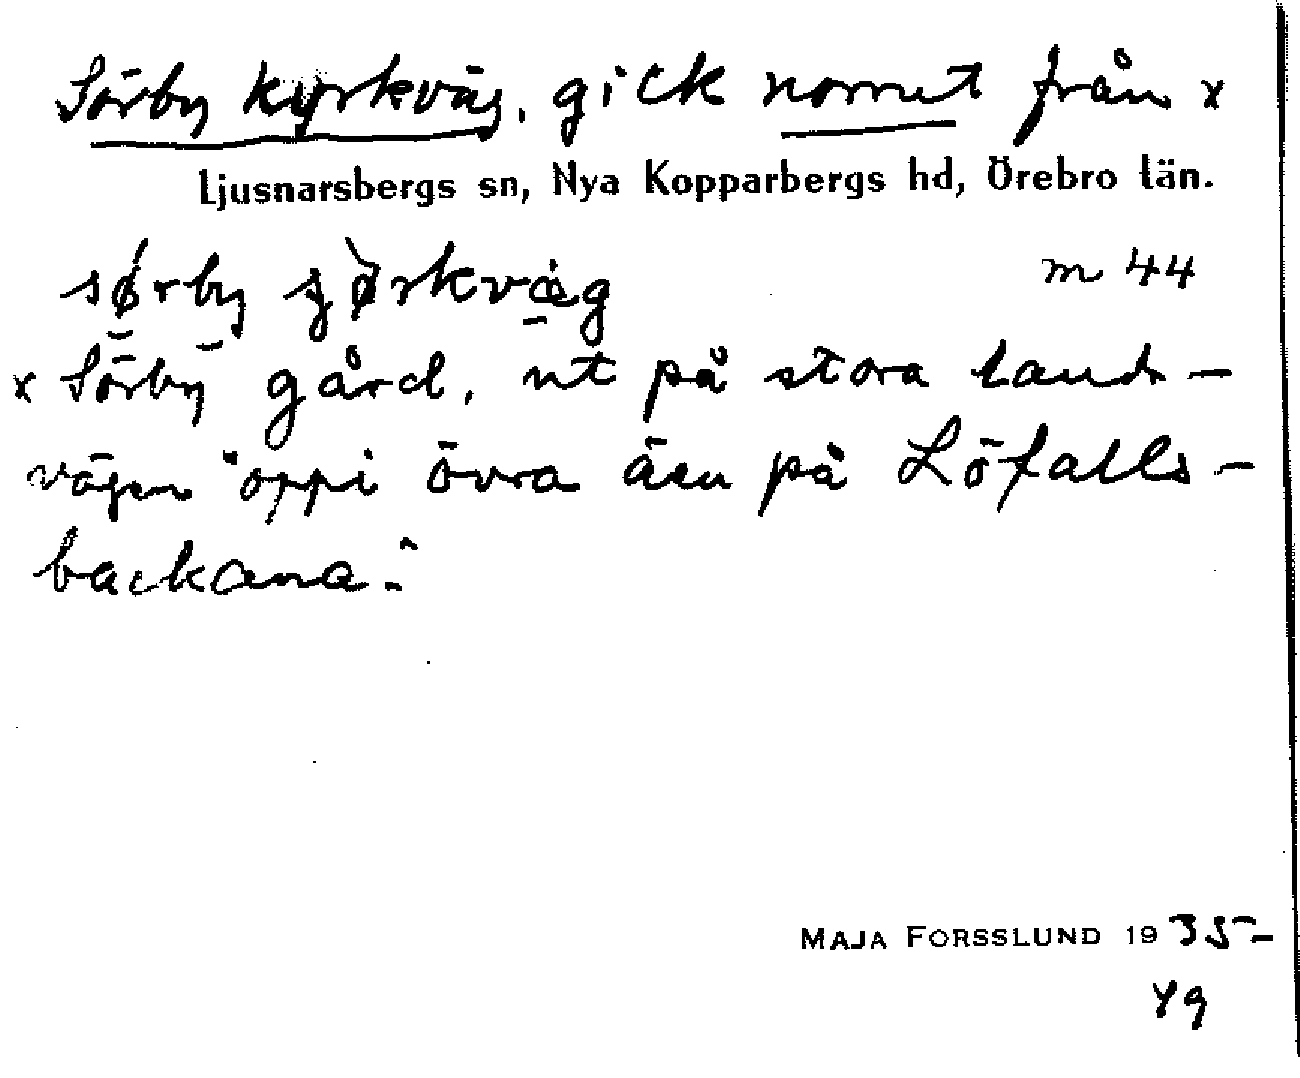 Sörby kyrkväg, gick norrut från x
Ljusnarsbergs sn, Nya Kopparbergs hd, Örebro län.
sørby sørkvæg m 44
x Sörby gård, ut på stora lands-
vägen "oppi övra äsn på Löfalls-
backana."
MAJA FORSSLUND 1935-